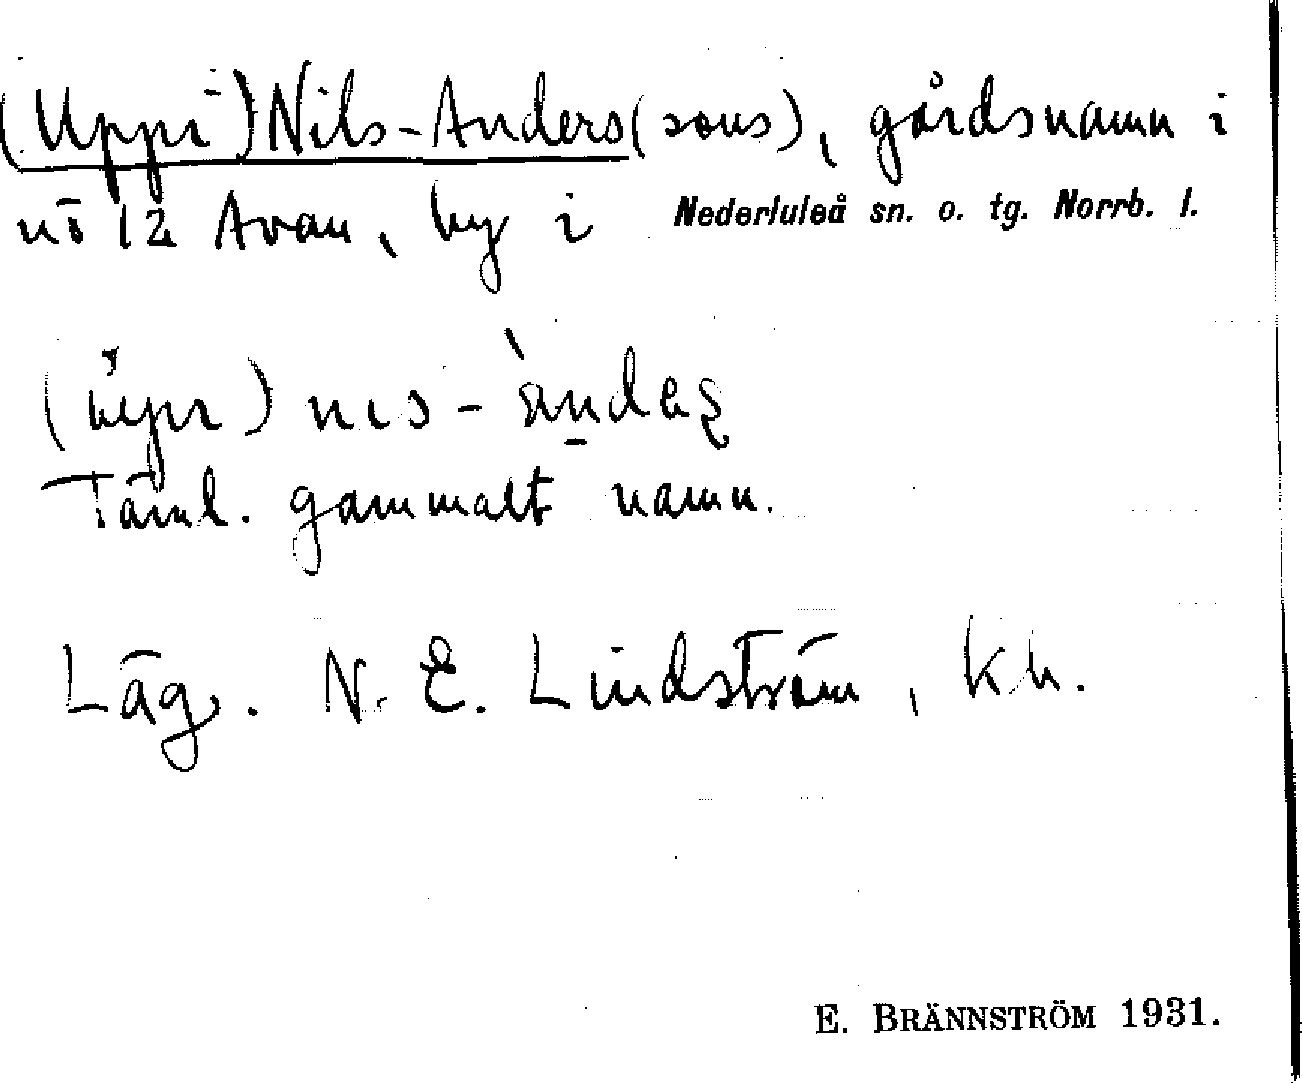 (Uppi) Nils-Anders(sons), gårdsnamn i
nō 12 Avan, by i Nederluleå sn. o. tg. Norrb. l.
nɩs-
Täml. gammalt namn.
Läg. N. E. Lindström, Kh.
E. BRÄNNSTRÖM 1931.